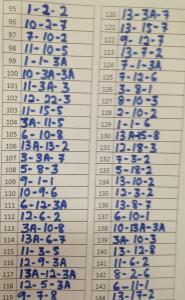 95 1-2-2
96 10-2-7
97 7-10-2
98 11-10-5
99 1-1-3A
100 10-3A-3A
101 11-3A-3
102 12-22-3
103 11-15-5
104 3A-11-5
105 6-10-8
106 13A-13-2
107 3-3A-7
108 5-8-3
109 9-1-1
110 10-9-6
111 6-12-3A
112 12-6-2
113 3A-10-8
114 13A-6-7
115 11-3-5
116 12-9-3A
117 13A-12-3A
118 12-5-3A
119 9-7-8
120 13-3A-7
121 13-15-7
122 9-12-7
123 13-7-2
124 7-1-3A
125 7-12-6
126 3-8-1
127 8-10-3
128 2-10-2
129 1-1-6
130 13A-15-8
131 12-18-3
132 7-3-2
133 5-18-2
134 13-10-2
135 12-3-2
136 13-8-7
137 6-10-1
138 10-13A-3A
139 3A-10-3
140 13-12-8
141 11-6-2
142 8-2-6
143 6-11-1
144 13-17-2